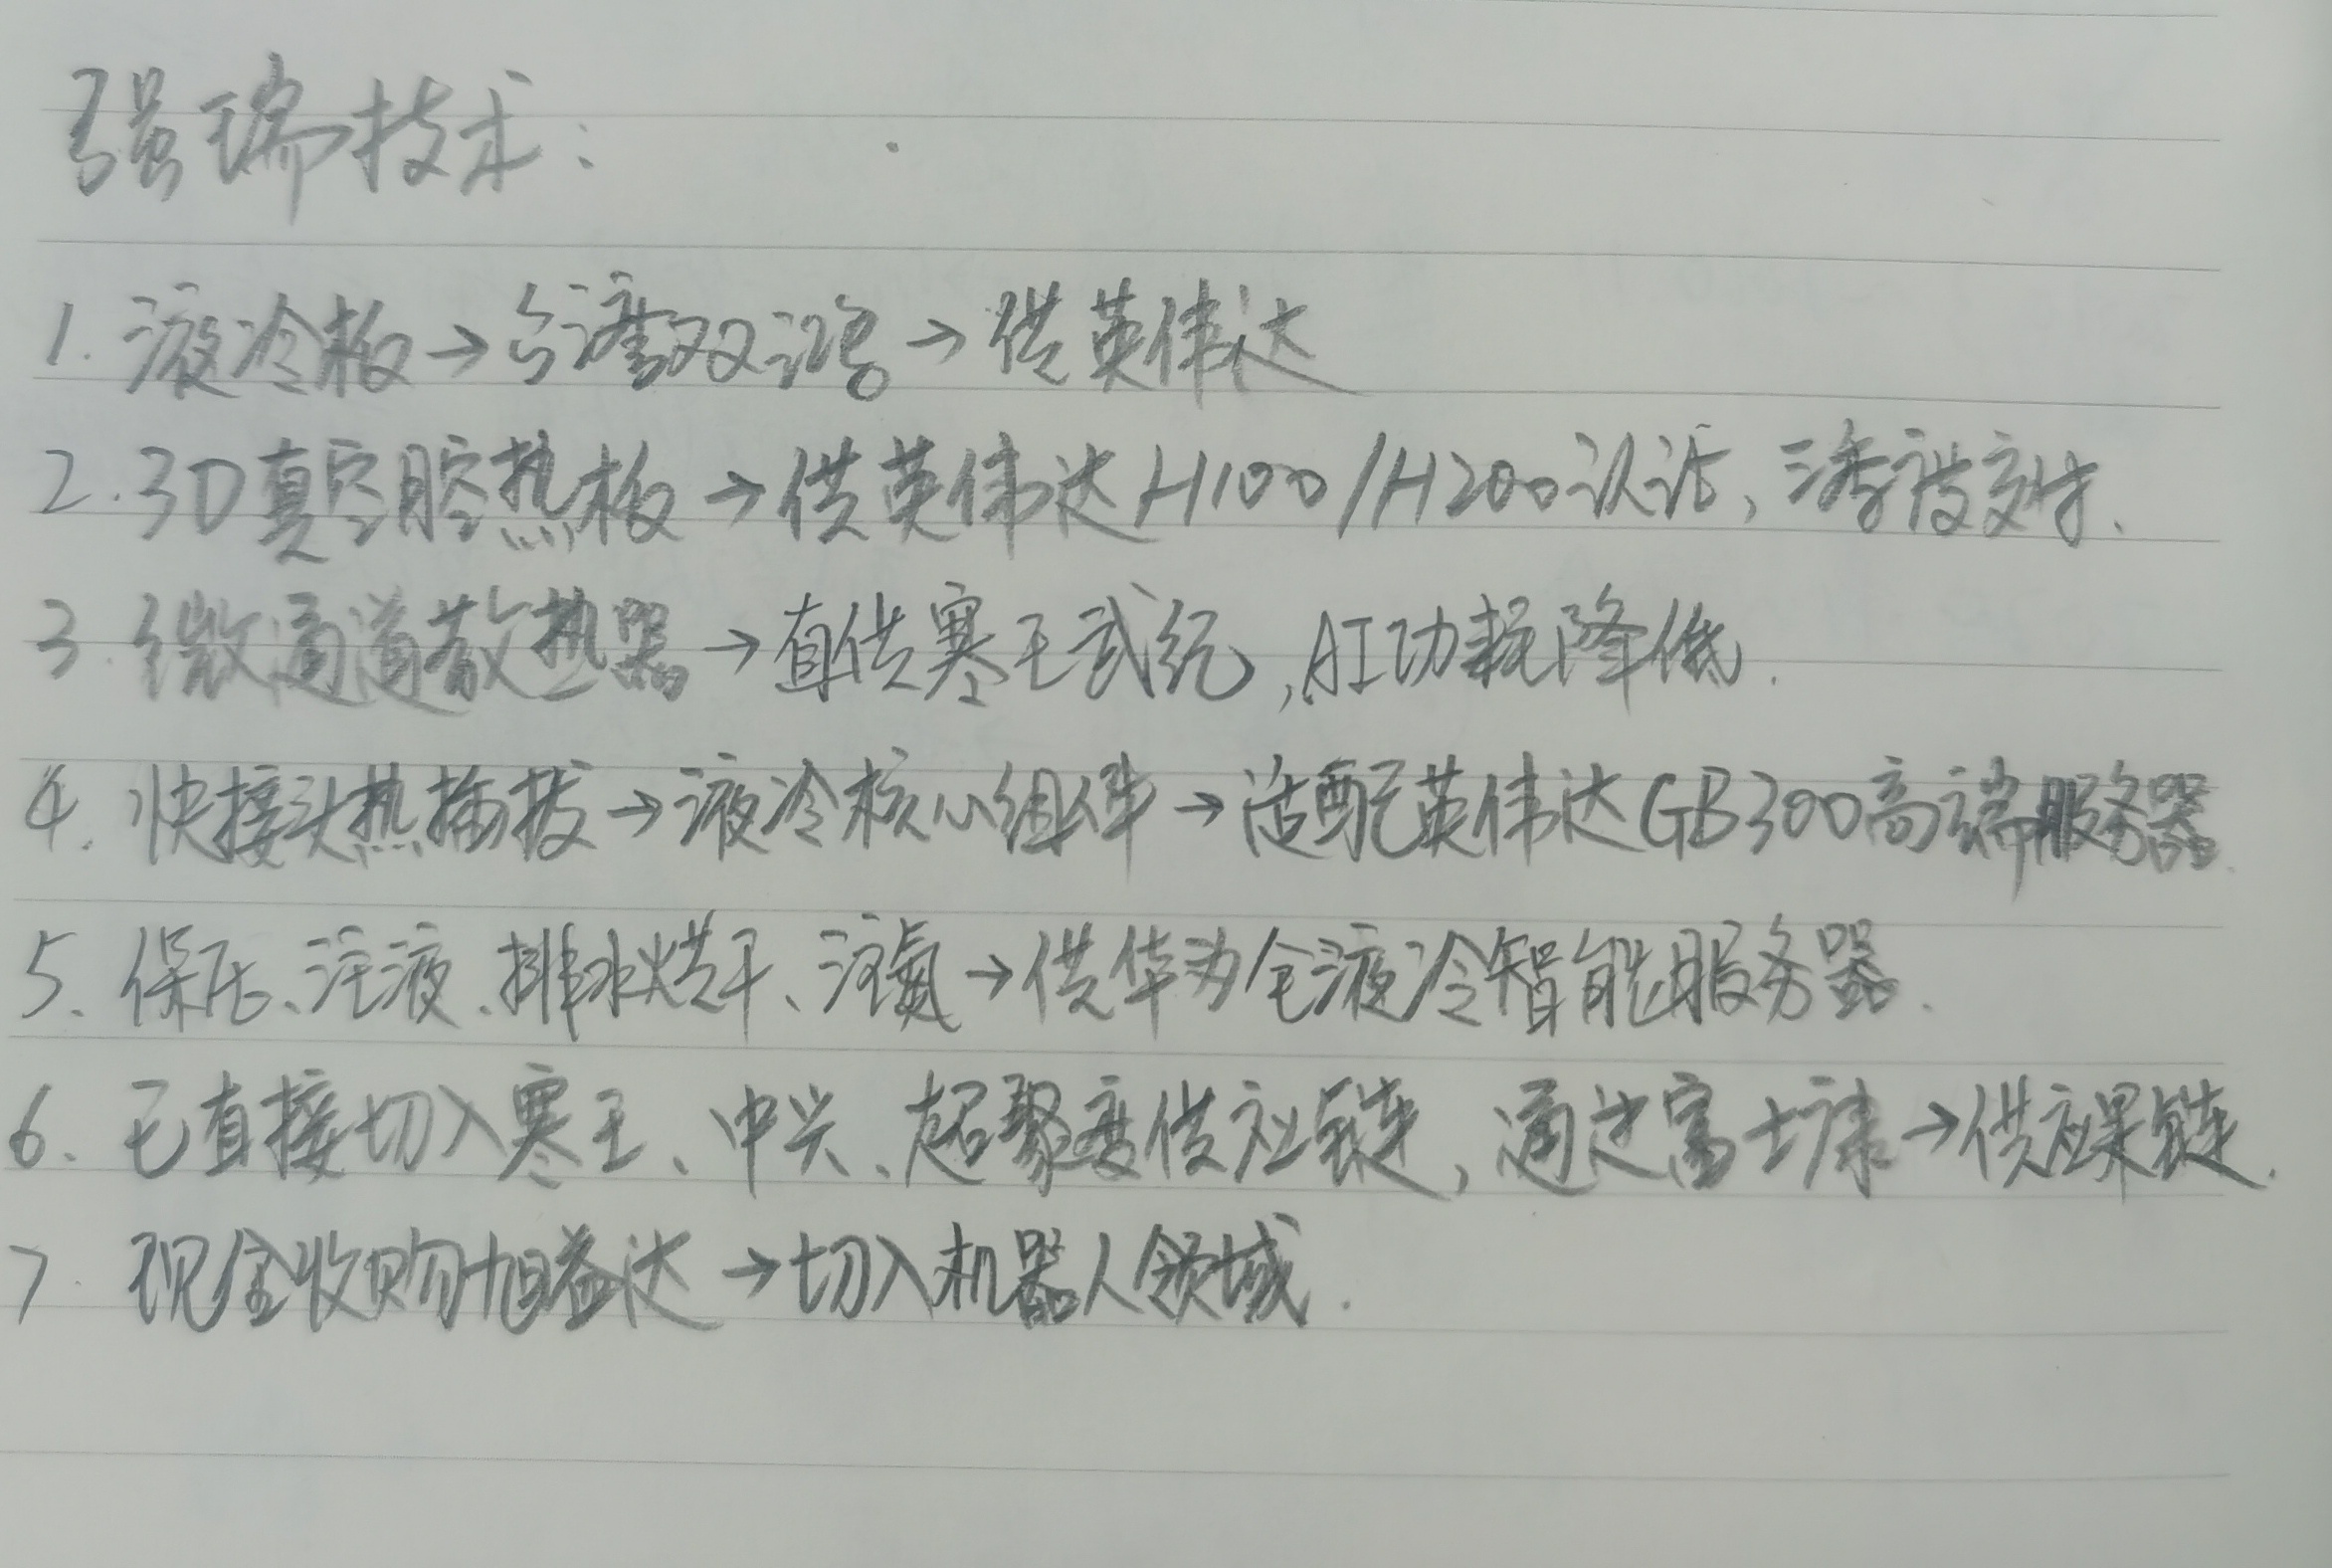 强瑞技术:
1. 液冷板→台湾双鸿→供英伟达
2. 3D真空腔热板→供英伟达H100/H200认证,
3. 微通道散热器→直供寒王武纪,AI功耗降低.
4. 快接头热插拔→液冷核心组件→适配英伟达GB300高端服务器.
5. 保压、注液、排水烘干、注氮→供华为全液冷智能服务器.
6. 已直接切入寒王、中兴、超聚变供应链,通过富士康→供应果链.
7. 现金收购旭益达→切入机器人领域.